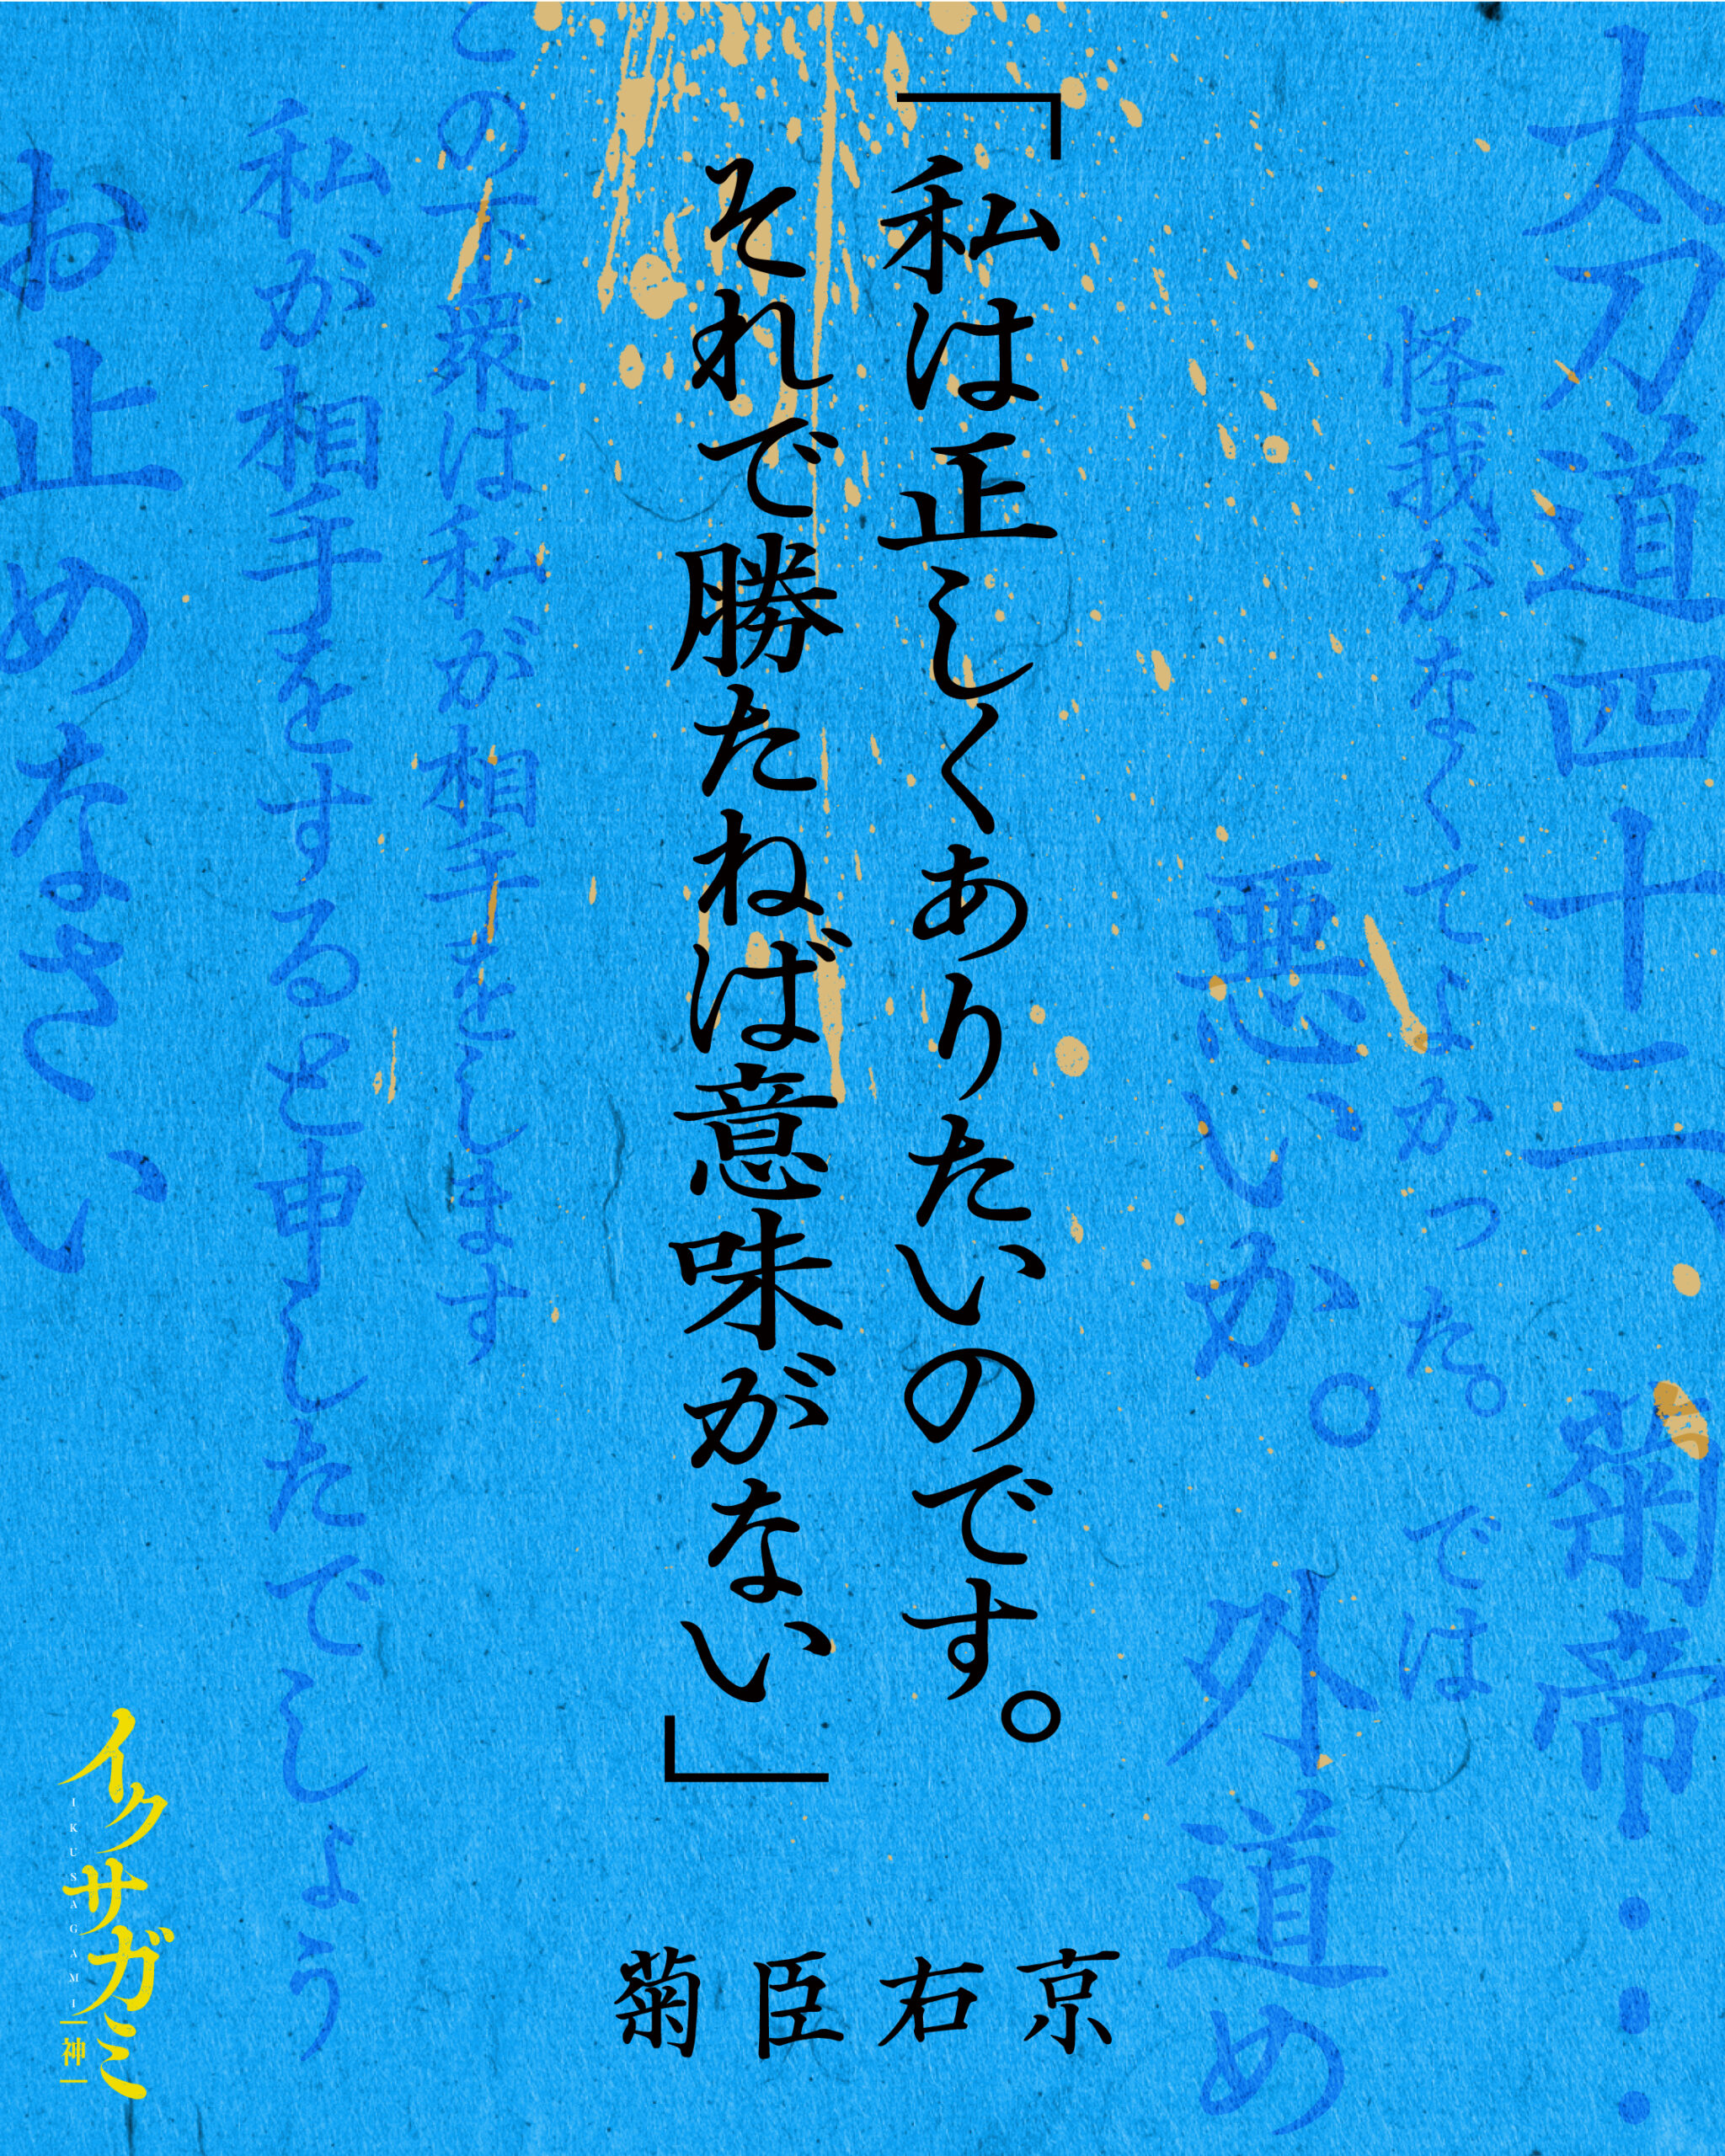 太刀道四十二、菊帝・・・
怪我がなくてよかった。では
悪いか。外道め
「私は正しくありたいのです。
それで勝たねば意味がない」
この下衆は私が相手をします
私が相手をすると申したでしょう
お止めなさい
菊臣右京
イクサガミ
IKUSAGAMI
神